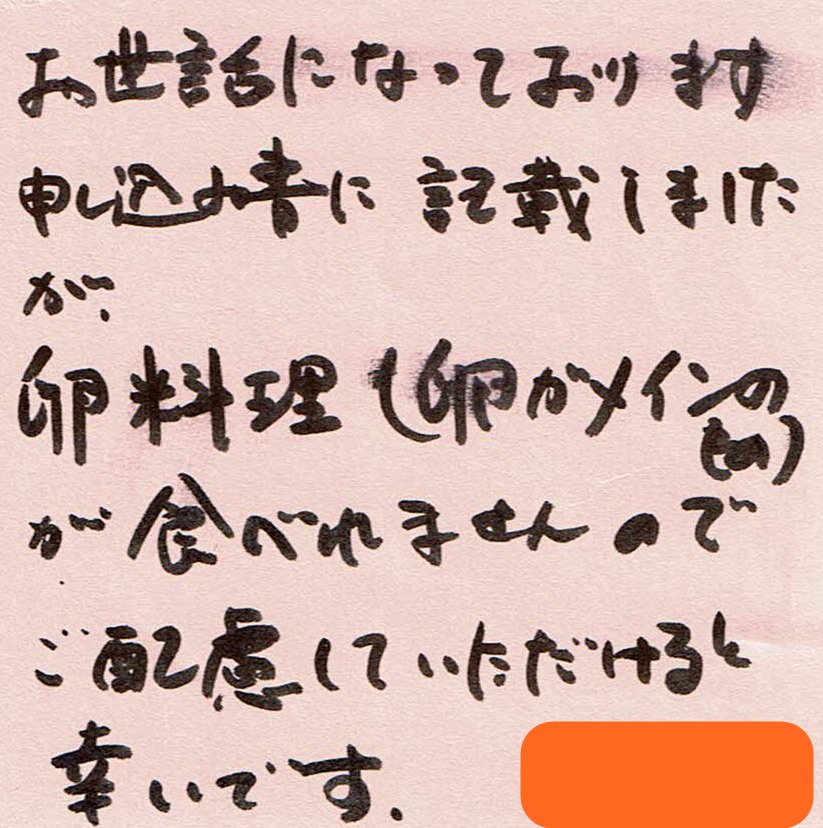 お世話になっております
申し込み書に記載しました
が、
卵料理(卵がメインの
もの)
が食べれませんので
ご配慮していただけると
幸いです.